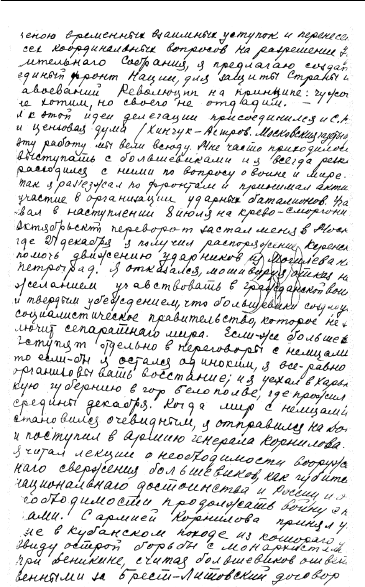 ценою временных взаимных уступок и перенесе
сех координальных вопросов на разрешение У
ительнаго Собрания, я предлагаю создат
единый фронт Нации, для защиты Страны и
авоеваний Революции на принципе: чужого
не хотим, но своего не отдадим. —
к этой идеи делегации присоединился и С.А.
и цензовая дума (Хинчук-Астров. Московския
эту работу мы вели всюду. Мне часто приходилось
выступать с большевиками и я всегда резко
расходился с ними по вопросу о войне и мире.
так я раз'езжал по фронтам и принимал акти
участие в организации ударных баталионов.
вал в наступлении 8 июля на крево-сморгони
Октябрьский переворот застал меня в
где 27 декабря я получил распоряжение Керенск
помочь движению ударников из Могилева на
петроград. Я отказался, мотивируя отказ не
желанием участвовать в гражданской вой
и твердым убеждением, что большевики
социалистическое правительство, которое не
лючит сепаратнаго мира. Если-же большев
вступят отдельно в переговоры с немцами
то если-бы я остался одиноким, я все-равно
организовывать восстание; и я уехал в Харьк
кую губернию в гор Белополье, где прожил
средины декабря. Когда мир с немцами
становился очевидным, я отправился на Дон
и поступил в армию генерала Корнилова.
я читал лекции о необходимости вооруж
наго свержения большевиков, как губите
национальнаго достоинства и России, и о
необходимости продолжать войну с
ами. С армией Корнилова принял у
ие в Кубанском походе из котораго
ввиду острой борьбы с монархистам
при Деникине, считая большевиков ответ
венными за Брест-Литовский договор